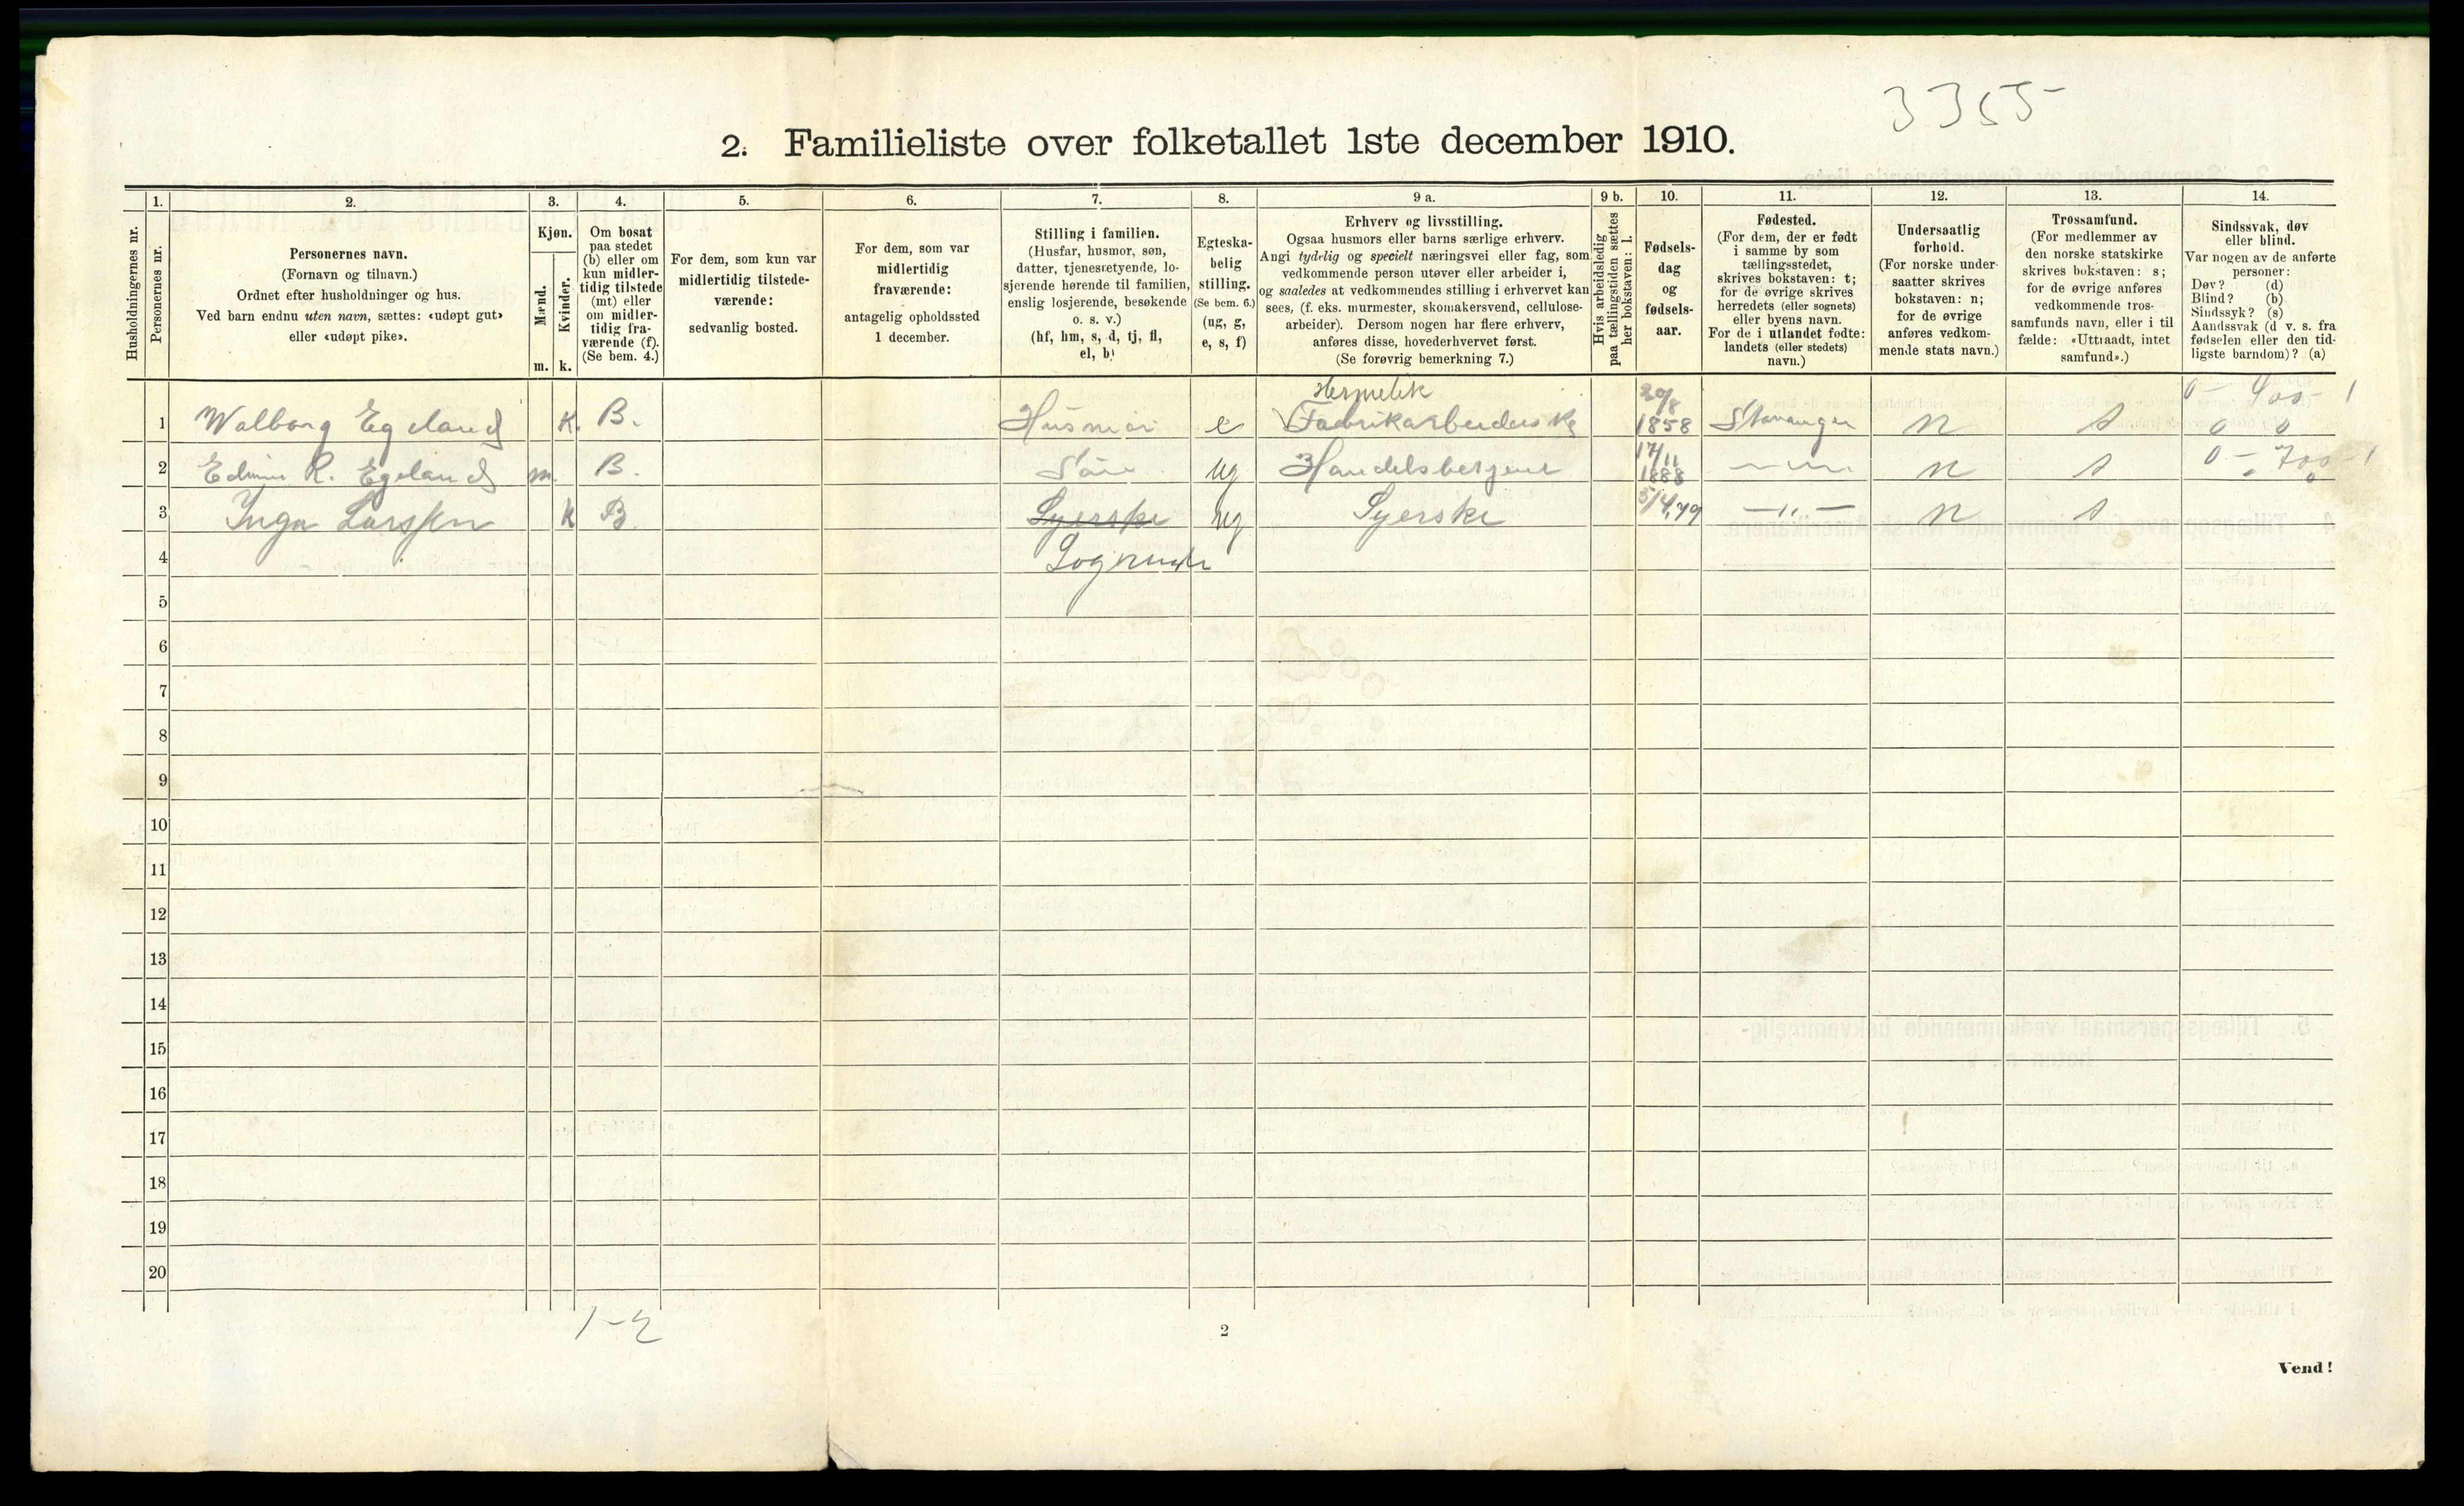 3355
2. Familieliste over folketallet 1ste december 1910.
Husholdningernes nr.
1. Personernes nr.
2. Personernes navn.
(Fornavn og tilnavn.)
Ordnet efter husholdninger og hus.
Ved barn endnu uten navn, sættes: «udøpt gut»
eller «udøpt pike».
3. Kjøn.
Mænd. m.
Kvinder. k.
4. Om bosat
paa stedet
(b) eller om
kun midler-
tidig tilstede
(mt) eller
om midler-
tidig fra-
værende (f).
(Se bem. 4.)
5. For dem, som kun var
midlertidig tilstede-
værende:
sedvanlig bosted.
6. For dem, som var
midlertidig
fraværende:
antagelig opholdssted
1 december.
7. Stilling i familien.
(Husfar, husmor, søn,
datter, tjenestetyende, lo-
sjerende hørende til familien,
enslig losjerende, besøkende
o. s. v.)
(hf, hm, s, d, tj, fl,
el, b)
8. Egteska-
belig
stilling.
(Se bem. 6.)
(ug, g,
e, s, f)
9 a. Erhverv og livsstilling.
Ogsaa husmors eller barns særlige erhverv.
Angi tydelig og specielt næringsvei eller fag, som
vedkommende person utøver eller arbeider i,
og saaledes at vedkommendes stilling i erhvervet kan
sees, (f. eks. murmester, skomakersvend, cellulose-
arbeider). Dersom nogen har flere erhverv,
anføres disse, hovederhvervet først.
(Se forøvrig bemerkning 7.)
9 b. Hvis arbeidsledig
paa tællingstiden sættes
her bokstaven: l.
10. Fødsels-
dag
og
fødsels-
aar.
11. Fødested.
(For dem, der er født
i samme by som
tællingsstedet,
skrives bokstaven: t;
for de øvrige skrives
herredets (eller sognets)
eller byens navn.
For de i utlandet fødte:
landets (eller stedets)
navn.)
12. Undersaatlig
forhold.
(For norske under-
saatter skrives
bokstaven: n;
for de øvrige
anføres vedkom-
mende stats navn.)
13. Trossamfund.
(For medlemmer av
den norske statskirke
skrives bokstaven: s;
for de øvrige anføres
vedkommende tros-
samfunds navn, eller i til
fælde: «Uttraadt, intet
samfund».)
14. Sindssvak, døv
eller blind.
Var nogen av de anførte
personer:
Døv? (d)
Blind? (b)
Sindssyk? (s)
Aandssvak (d v. s. fra
fødselen eller den tid-
ligste barndom)? (a)
Hermetik 20/8 0 - 400 - 1
1 Walborg Egeland K. B. Husmor e Fabrikarbeiderske 1858 Stavanger n s 0 0
2 Edvin R. Egeland m. B. Søn ug Handelsbetjent 17/11 1888 — " — n s 0 - 700 - 1 0
3 Inga Larssen K B. Syerske ug Syerske 5/4.79 — " — n s
4 Logerende
5
6
7
8
9
10
11
12
13
14
15
16
17
18
19
20
1-2
2
Vend!